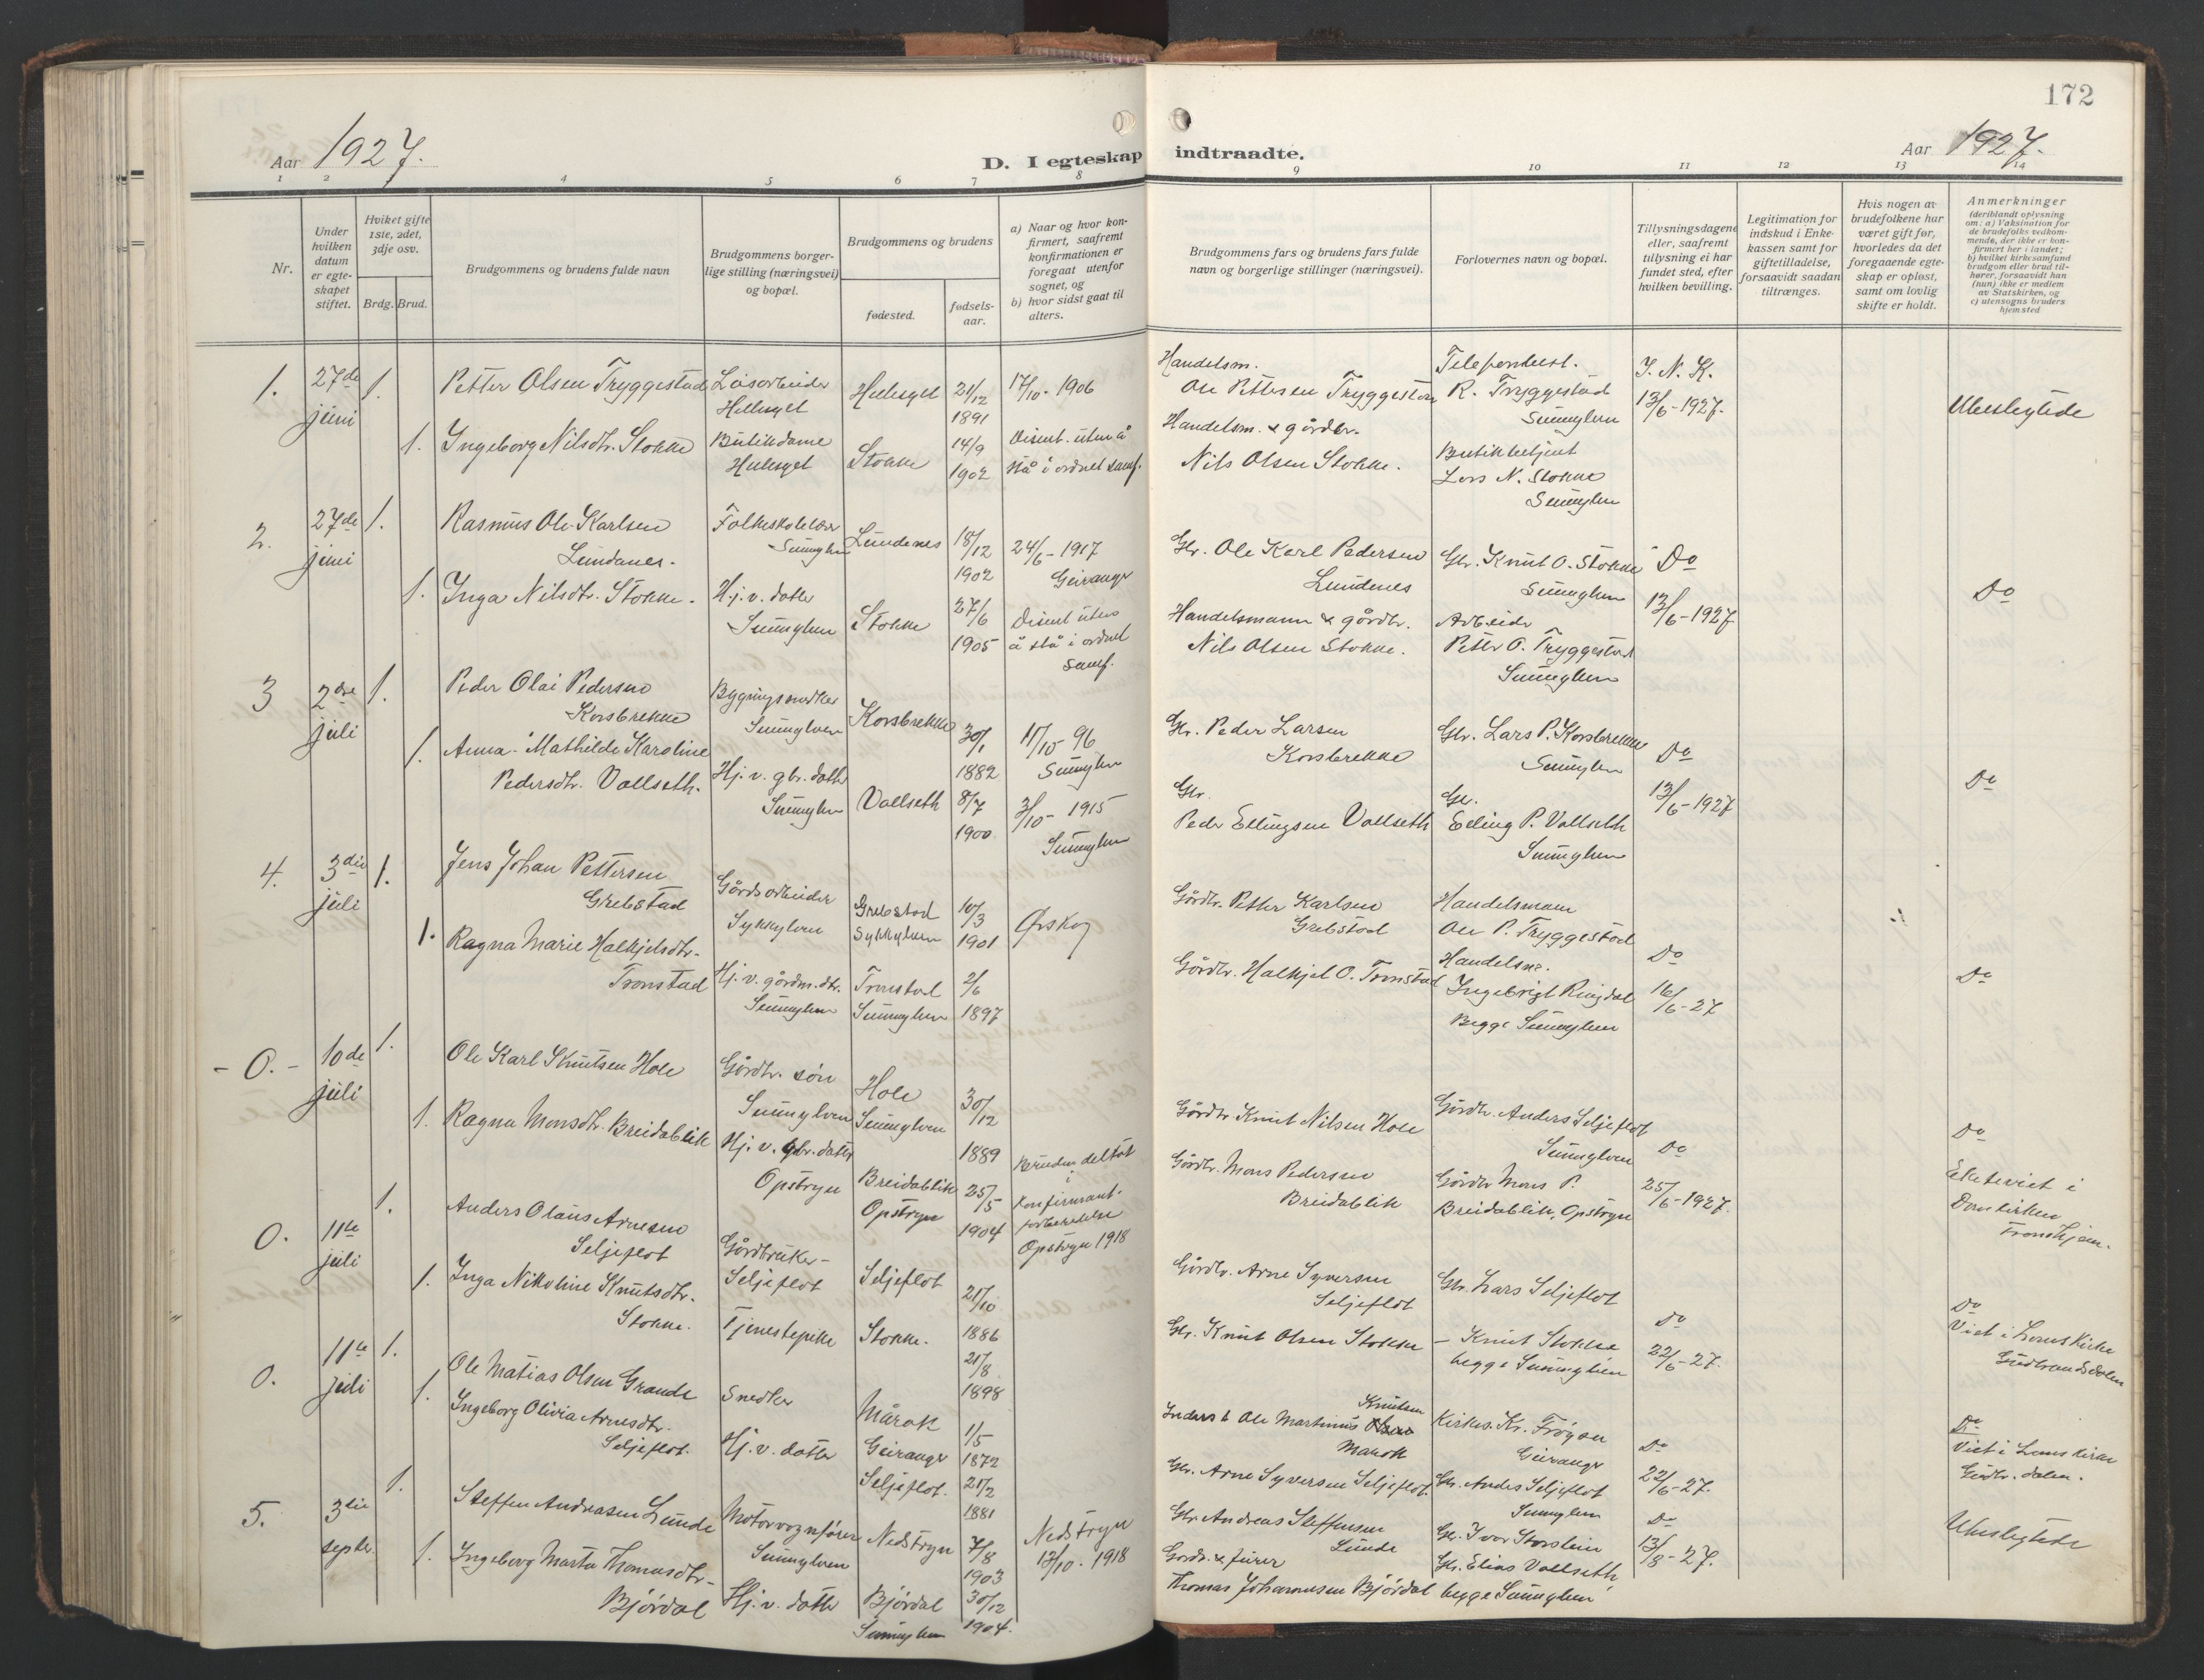 172
Aar 1927.
D. I egteskap indtraadte.
Aar 1927.
1 2 4 5 6 7 8 9 10 11 12 13 14
Nr.
Under hvilken datum er egteskapet stiftet.
Hviket gifte 1ste, 2det, 3dje osv.
Brdg. Brud.
Brudgommens og brudens fulde navn
Brudgommens borgerlige stilling (næringsvei) og bopæl.
Brudgommens og brudens
fødested.
fødselsaar.
a) Naar og hvor konfirmert, saafremt konfirmationen er foregaat utenfor sognet, og
b) hvor sidst gaat til alters.
Brudgommens fars og brudens fars fulde navn og borgerlige stillinger (næringsvei).
Forlovernes navn og bopæl.
Tillysningsdagene eller, saafremt tillysning ei har fundet sted, efter hvilken bevilling.
Legitimation for indskud i Enkekassen samt for giftetilladelse, forsaavidt saadan tiltrænges.
Hvis nogen av brudefolkene har været gift før, hvorledes da det foregaaende egteskap er opløst, samt om lovlig skifte er holdt.
Anmerkninger
(deriblandt oplysning om: a) Vaksination for de brudefolks vedkommende, der ikke er konfirmert her i landet; b) hvilket kirkesamfund brudgom eller brud tilhører, forsaavidt han (hun) ikke er medlem av Statskirken, og c) utensogns bruders hjemsted
1. 27de juni 1.
Petter Olsen Tryggestad
Løsarbeider
Hellesylt
Hellesylt
21/12 1891
17/10 - 1906
Handelsm.
Ole Pettersen Tryggestad
Telefonbest.
R. Tryggestad
Sunnylven
I. N. K.
13/6-1927.
Ubeslegtede
1. Ingeborg Nilsdtr. Stokke
Butikdame
Hellesylt
Stokke
14/9 1902
Disent. uten å stå i ordnet samf.
Handelsm. & gårdbr.
Nils Olsen Stokke.
Butikbetjent
Lars N. Stokke
Sunnylven
2. 27de juni 1.
Rasmus Ole Karlsen
Lundanes.
Folkeskolelærer
Sunnylven
Lundenes
18/12 1902
24/6 - 1917
Geiranger
Gbr. Ole Karl Pedersen
Lundenes
Gbr. Knut O. Stokke
Sunnylven
Do
13/6-1927
Do
1. Inga Nilsdtr. Stokke.
Hj. v. datter
Sunnylven
Stokke
27/6 1905
Disent uten å stå i ordnet samf.
Handelsmann & gårdbr.
Nils Olsen Stokke.
Arbeider
Petter O. Tryggestad
Sunnylven
3 2den juli 1.
Peder Olai Pedersen
Korsbrekke
Bygningssnedker
Sunnylven
Korsbrekke
30/1 1882
11/10 - 96
Sunnylven
Gbr. Peder Larsen
Korsbrekke
Gbr. Lars P. Korsbrekke
Sunnylven
Do
13/6-1927
Do
1. Anna Mathilde Karoline
Pedersdtr. Vollseth.
Hj. v. gbr. datter
Sunnylven
Vollseth
8/7 1900
3/10 - 1915
Sunnylven
Gbr.
Peder Ellingsen Vollseth
Gbr.
Elling P. Vollseth
Sunnylven
4. 3die juli 1.
Jens Johan Pettersen
Grebstad
Gårdsarbeider
Sykkylven
Grebstad
Sykkylven
10/3 1901
Ørskog
Gårdbr. Petter Karlsen
Grebstad
Handelsmann
Ole P. Tryggestad
Do
16/6-27
Do
1. Ragna Marie Halkjelsdtr.
Tronstad
Hj. v. gårdm. dtr.
Sunnylven
Tronstad
Sunnylven
2/6 1897
Gårdbr. Halkjel O. Tronstad
Handelsm.
Ingebrigt Ringdal
Begge Sunnylven
- 0. - 10de juli 1.
Ole Karl Knutsen Hole
Gårdbr. søn
Sunnylven
Hole
Sunnylven
30/12 1889
Gårdbr Knut Nilsen Hole
Gårdbr. Anders Seljeflot
Sunnylven
Do
25/6-1927.
Do
Ekteviet i
Domkirken
Trondhjem.
1. Ragna Monsdtr. Breidablik
Hj. v. gbr. datter
Opstryn
Breidablik
Opstryn
25/5 1904
Bruden deltat i konfirmantforberedelse
Opstryn 1918
Gårdbr. Mons Pedersen
Breidablik
Gårdbr Mons P.
Breidablik, Opstryn
0. 11te juli 1.
Anders Olaus Arnesen
Seljeflot
Gårdbruker
Seljeflot
Seljeflot
21/10 1886
Gårdbr. Arne Syversen
Seljeflot
Gbr. Lars Seljeflot
Do
22/6-27.
Do
Viet i Loms Kirke
Gudbrandsdalen
1. Inga Nikoline Knutsdtr.
Stokke.
Tjenestepike
Stokke.
21/8 1898
Gbr. Knut Olsen Stokke
- Knut Stokke
begge Sunnylven
0. 11te juli 1.
Ole Matias Olsen Grande
Snedker
Mårok
Geiranger
1/5 1872
Inderst Ole Martinus Knutsen
Marok
Kirkes. Kr. Frøysa
Geiranger
Do
22/6-27.
Do
Viet i Loms Kirke
Gudbr. dalen.
1. Ingeborg Olivia Arnesdtr.
Seljeflot.
Hj. v. datter
Seljeflot.
21/2 1881
Gbr. Arne Syversen Seljeflot
Gbr. Anders Seljeflot
Sunnylven
5. 3die septbr. 1.
Steffen Andreasen Lunde
Motorvognfører
Sunnylven
Nedstryn
7/8 1903
Nedstryn
13/10 - 1918
Gbr Andreas Steffensen
Lunde
Gbr. Ivar Storslein
Do
13/8-27.
Ubeslegtede
1. Ingeborg Marta Thomasdtr.
Bjørdal
Hj. v. datter
Bjørdal
Sunnylven
30/12 1904.
Gårdbr. & fører
Thomas Johannesen Bjørdal
Gbr. Elias Vollseth,
begge Sunnylven